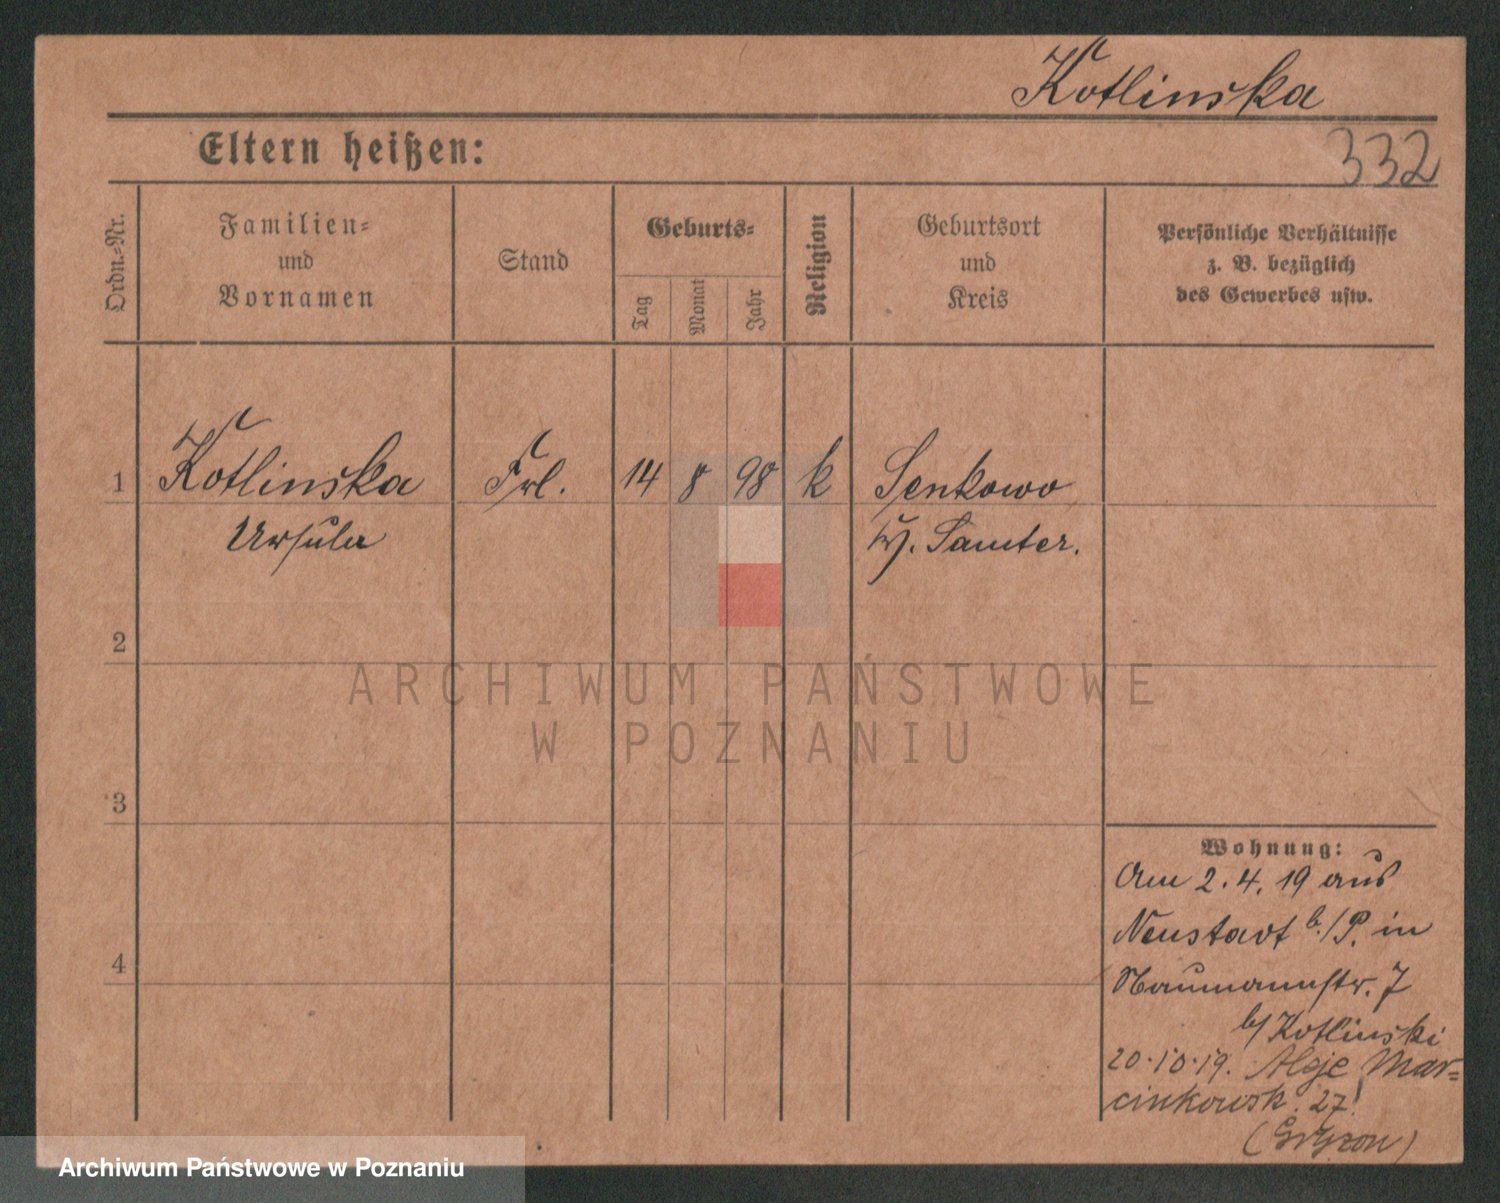 Kotlinska
332
Eltern heißen:
Ordn.-Nr.
Familien- und Vornamen
Stand
Geburts-
Tag
Monat
Jahr
Religion
Geburtsort und Kreis
Persönliche Verhältnisse
z. B. bezüglich
des Gewerbes usw.
1 Kotlinska Frl. 14 8 98 k Senkowo
Ursula Kr. Samter.
2
3
4
ARCHIWUM PAŃSTWOWE
W POZNANIU
Wohnung:
Am 2.4.19 aus
Neustadt b./P. in
Naumannstr. 7
b/ Kotlinski
20.10.19. Aleje Mar-
cinkowsk. 27
Archiwum Państwowe w Poznaniu